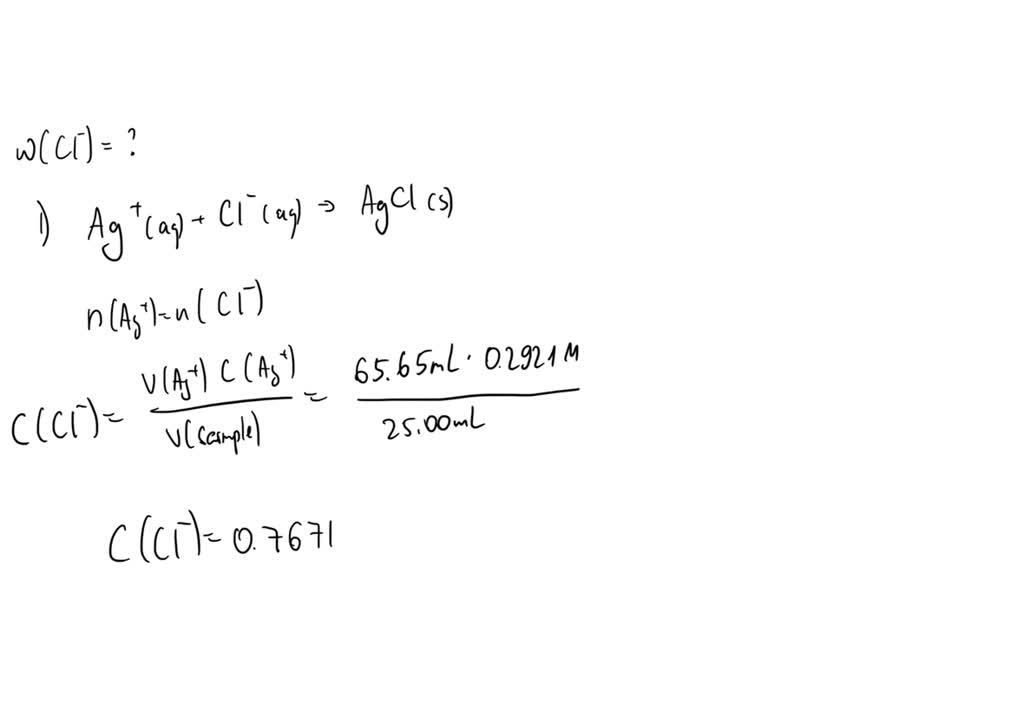 w(Cl⁻) = ?
1) Ag⁺(aq) + Cl⁻(aq) → AgCl(s)
n(Ag⁺) = n(Cl⁻)
C(Cl⁻) = V(Ag⁺) C(Ag⁺) / V(sample) = 65.65mL · 0.2921M / 25.00mL
C(Cl⁻) = 0.7671